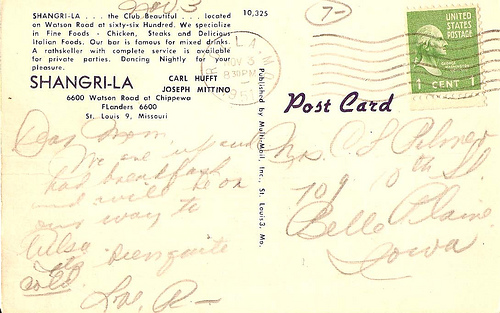 Nov 3
SHANGRI-LA . . . the Club Beautiful . . . located
on Watson Road at sixty-six Hundred. We specialize
in Fine Foods - Chicken, Steaks and Delicious
Italian Foods. Our bar is famous for mixed drinks.
A rathskeller with complete service is available
for private parties. Dancing Nightly for your
pleasure.
SHANGRI-LA
CARL HUFFT
JOSEPH MITTINO
6600 Watson Road at Chippewa
FLanders 6600
St. Louis 9, Missouri
10,325
7-
NOV 3
8:30PM
UNITED
STATES
POSTAGE
1 CENT 1
Published by Multi-Mail, Inc., St. Louis 3, Mo.
Post Card
Dear Mom
We are up and
had breakfast
and will be on
our way to
Tulsa
its quite
cold.
Love,
Mrs. C L Palmer
709 10th St.
Belle Plaine
Iowa